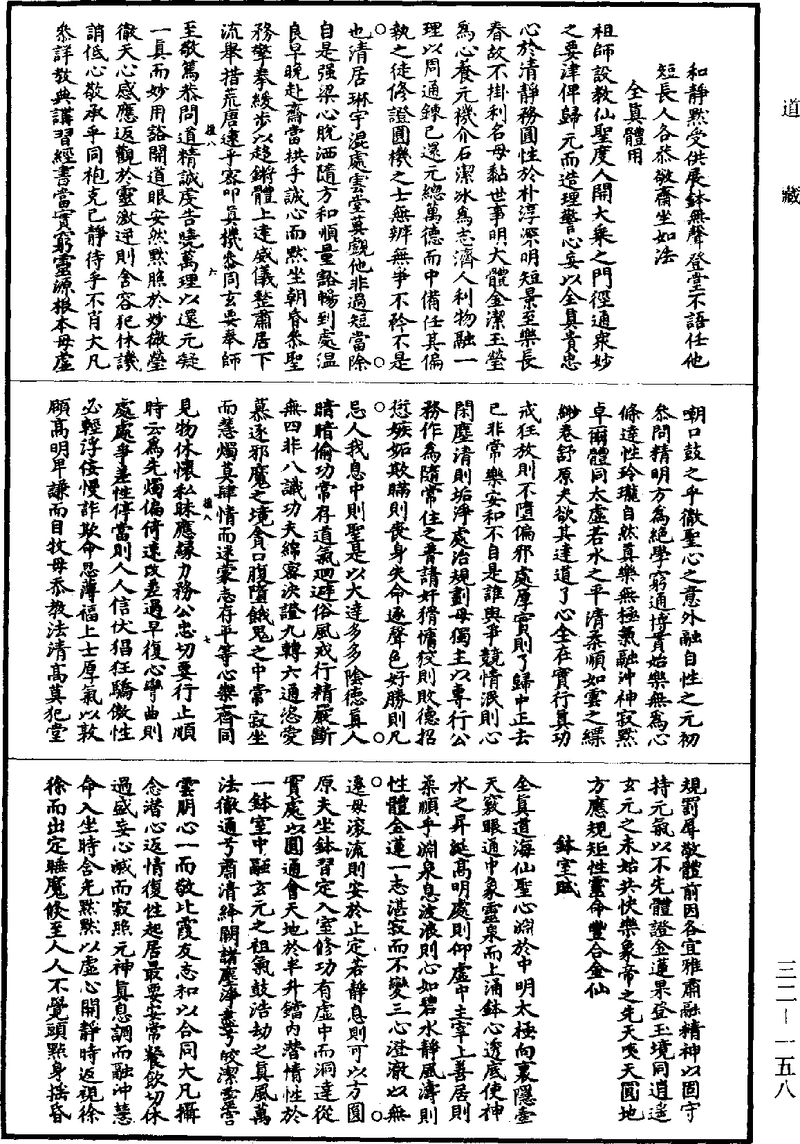 道藏
和靜默受供展鉢無聲登堂不語任他
短長人各恭敬齋坐如法
全真體用
祖師設教仙聖度人開大乘之門徑通衆妙
之要津俾歸元而造理警心妄以全真貴忠
心於清靜務圓性於朴淳深明短景至樂長
春故不掛利名毋黏世事明大體金潔玉瑩
爲心養元機介石潔冰爲志濟人利物融一
理以周通鍊己還元總萬德而中備任其偏
執之徒修證圓機之士無辨無爭不矜不是
也清居琳宇混處雲堂莫覷他非過短當除
自是强梁心脫洒隨方和順量豁暢到處溫
良早晚赴齋當拱手誠心而默坐朝昏叅聖
務擎拳緩步以趍蹡體上達威儀整肅居下
流舉措荒唐遠乎密叩真機叅同玄要奉師
至敬篤恭問道精誠虔告曉萬理以還元凝
一真而妙用豁開道眼安然默照於妙微瑩
徹天心感應返觀於靈激逆則含容犯休譏
誚低心敬承乎同袍克己靜待乎不肖大凡
叅詳教典講習經書當實窮靈源根本毋虛
嘲口鼓之乎徹聖心之意外融自性之元初
叅問精明方爲絕學窮通博貫始樂無爲心
條達性玲瓏自然真樂無極氣融沖神寂默
卓爾體同太虛若水之平清柔順如雲之縹
緲卷舒原夫欲其達道了心全在實行真功
戒狂放則不墮偏邪處厚實則了歸中正去
已非常樂安和不自是誰與爭競情泯則心
閑塵清則垢淨處治規劃毋獨主以專行公
務作爲隨常住之普請奸猾慵狡則敗德招
愆嫉妬欺瞞則喪身失命逐聲色好勝則凡
忌人我息中則聖是以大達多多陰德真人
暗暗倫功常存道氣迴避俗風戒行精嚴斷
無四非八識功夫綿密決證九轉六通恣愛
慕逐邪魔之境貪口腹墮餓鬼之中常寂坐
而慧燭莫肆情而迷蒙志存平等心樂齊同
見物休懷私昧應緣力務公忠切要行止順
時云爲先燭偏倚速改差過早復心學曲則
處處爭差性停當則人人信伏猖狂驕傲性
必輕浮侫慢詐欺命忍薄福上士厚氣以敦
願高明早謙而自牧毋忝教法清高莫犯堂
規罰辱敬體前因各宜雅肅融精神以固守
持元氣以不先體證金蓮果登玉境同逍遙
玄元之未始共快樂象帝之先天喫天圓地
方應規矩性靈命豐合金仙
鉢室賦
全真道海仙聖心淵於中明太極向裏隱壷
天竅眼通中象靈泉而上涌鉢心透底使神
水之昇綎高明處則仰虛中主宰上善居則
柔順乎淵泉息波浪則心如碧水靜風濤則
性體金蓮一志湛寂而不變三心澄澈以無
遷毋滚流則安於止定若靜息則可以方圓
原夫坐鉢習定入室修功有虛中而洞達從
實處以圓通會天地於半升鐺內潜情性於
一鉢室中融玄元之祖氣鼓浩劫之真風萬
法徹通兮肅清絳闕諸塵淨盡兮皎潔靈宫
雲朋心一而敬比霞友志和以合同大凡攝
念潜心返情復性起居最要安常餐飲切休
過盛妄心滅而寂照元神真息調而融沖慧
命入坐時含光默默以虛心開靜時返視徐
徐而出定睡魔倐至人人不覺頭默身揺昏
三二－一五八